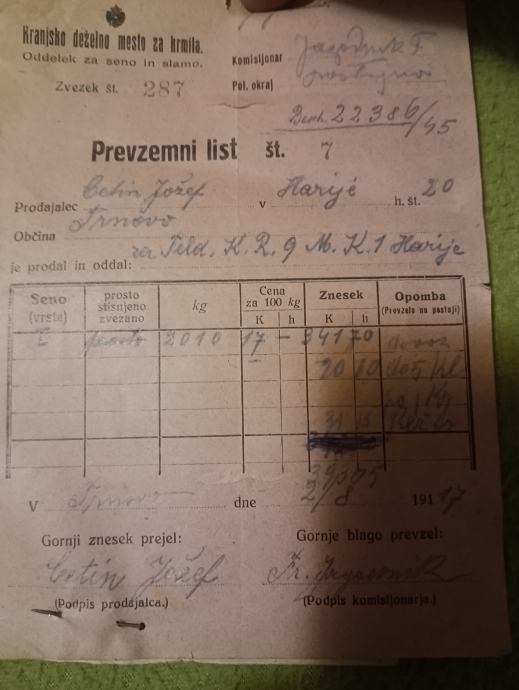 Kranjsko deželno mesto za krmila.
Oddelek za seno in slamo.
Zvezek št. 287
Komisijonar Jagodnik F
Pol. okraj Postojna
22386/45
Prevzemni list št. 7
Prodajalec Cetin Jožef v Harije h. št. 20
Občina Trnovo
za Feld. K. R. 9 M. K. 1 Harije
je prodal in oddal:
Seno (vrsta) prosto stisnjeno zvezano kg Cena za 100 kg K h Znesek K h Opomba (Prevzelo na postaji)
I prosto 2010 17 - 341 70 dovoz
20 10 do 5 Kl
31 15
393 05
V Trnovo dne 2/8 1917
Gornji znesek prejel: Gornje blago prevzel:
Cetin Jožef Fr.
(Podpis prodajalca.) (Podpis komisijonarja.)